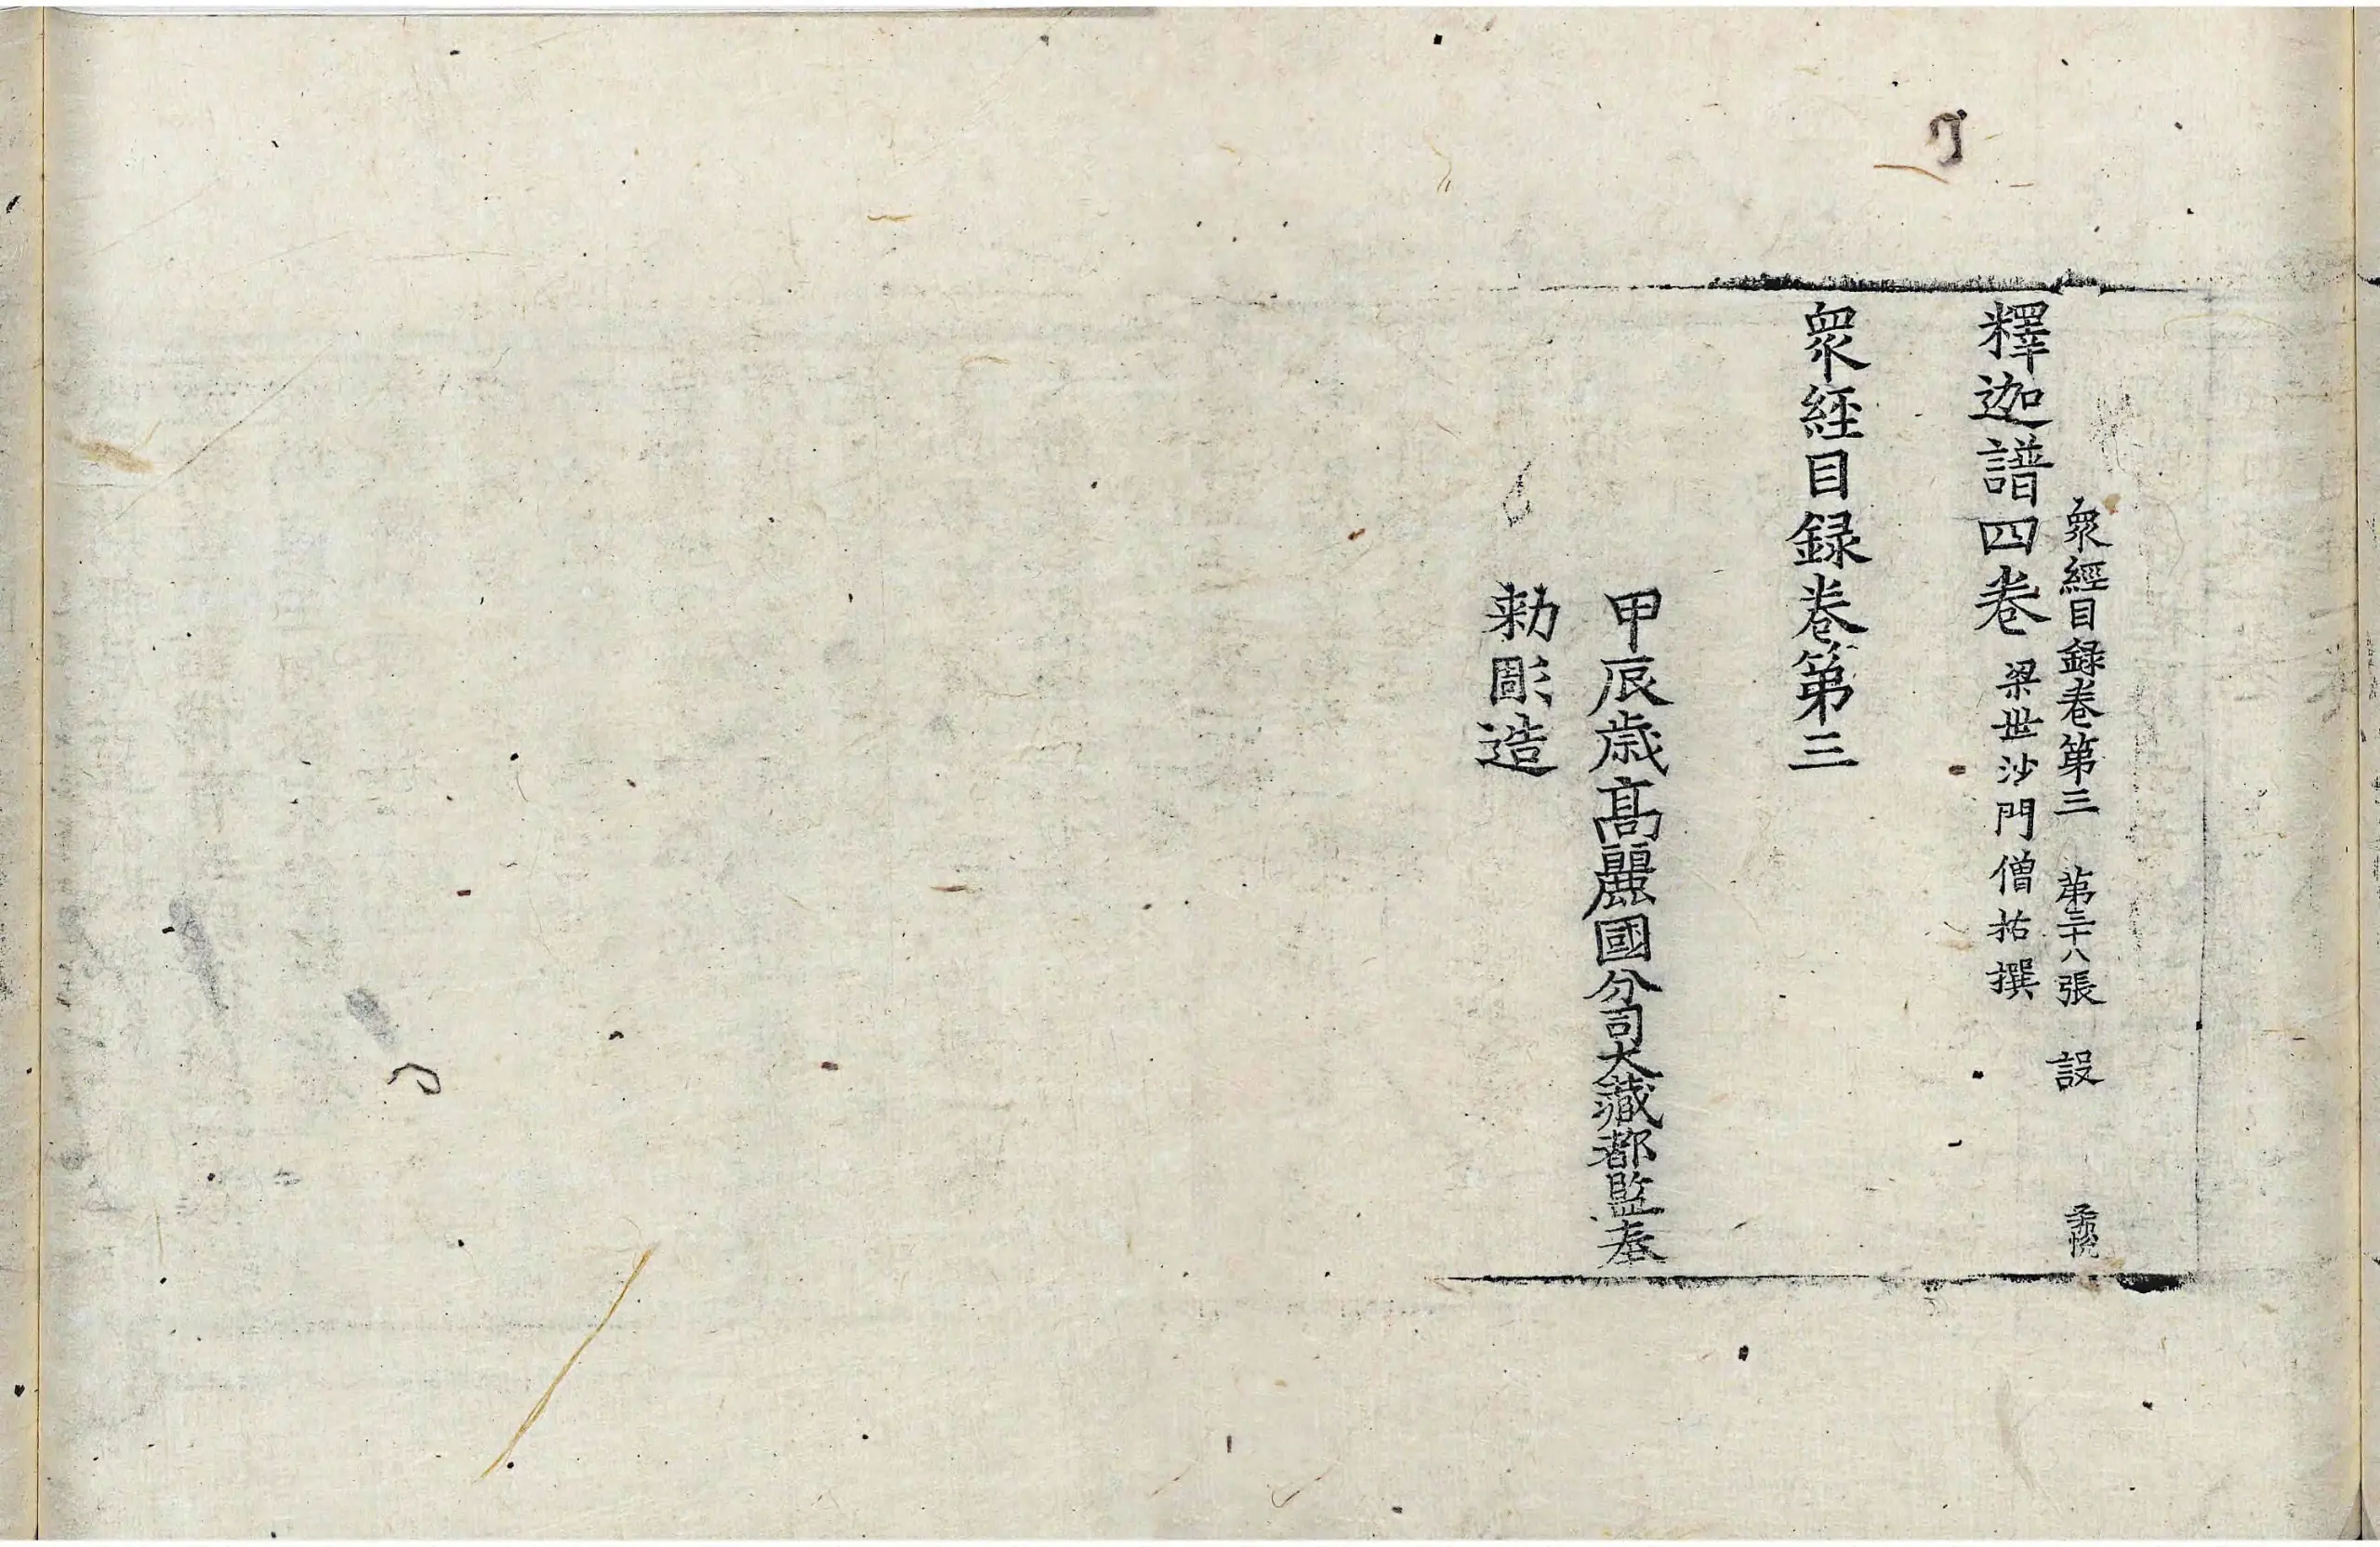 衆經目録卷第三 第三十八張 設
釋迦譜四卷 梁世沙門僧祐撰
衆經目録卷第三
甲辰歳高麗國分司大藏都監奉
勑彫造